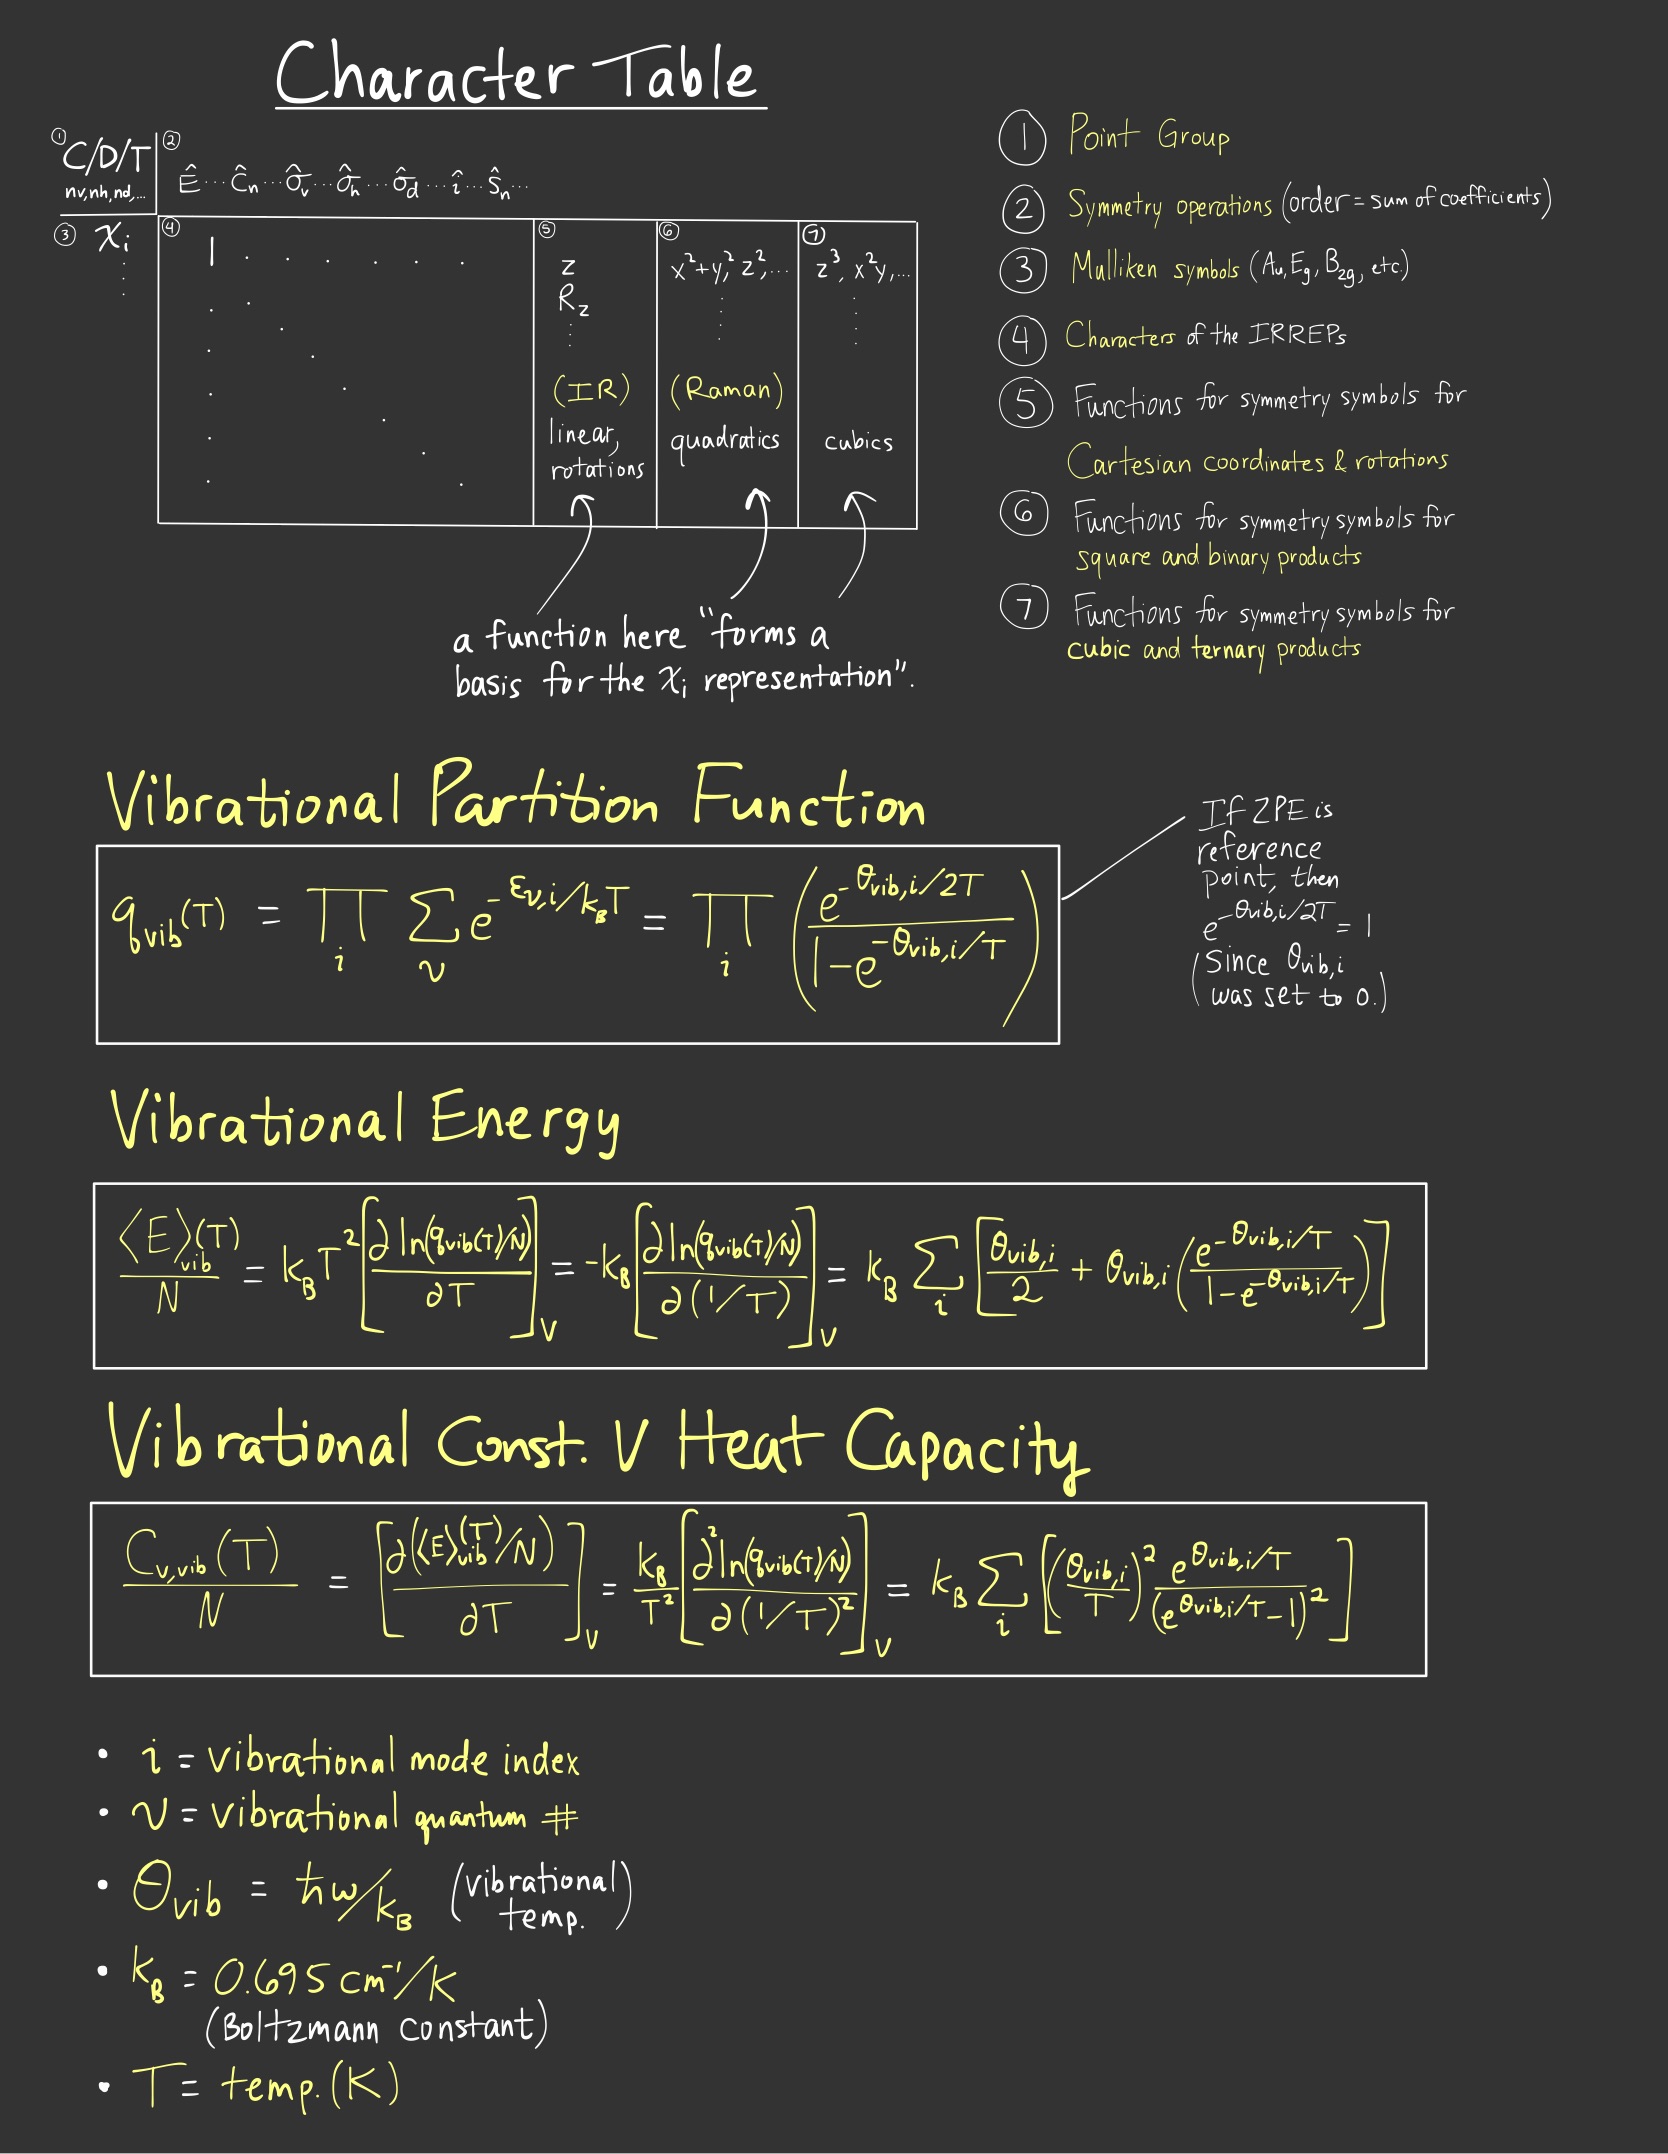 Character Table
① C/D/T
nv,nh,nd,...
② Ê ... Ĉn ... σ̂v ... σ̂h ... σ̂d ... î ... Ŝn ...
③ χi
④ 1 . . . . . .
⑤ z
Rz
(IR)
linear,
rotations
⑥ x²+y², z², ...
(Raman)
quadratics
⑦ z³, x²y, ...
cubics
a function here "forms a
basis for the χi representation".
① Point Group
② Symmetry operations (order = sum of coefficients)
③ Mulliken symbols (Au, Eg, B2g, etc.)
④ Characters of the IRREPs
⑤ Functions for symmetry symbols for
Cartesian coordinates & rotations
⑥ Functions for symmetry symbols for
square and binary products
⑦ Functions for symmetry symbols for
cubic and ternary products
Vibrational Partition Function
q_vib(T) = ∏_i ∑_v e^(-ε_v,i/k_BT) = ∏_i (e^(-θ_vib,i/2T) / 1-e^(-θ_vib,i/T))
If ZPE is
reference
point, then
e^(-θ_vib,i/2T) = 1
(Since θ_vib,i
was set to 0.)
Vibrational Energy
⟨E⟩_vib(T)/N = k_BT² [∂ln(q_vib(T)/N) / ∂T]_V = -k_B [∂ln(q_vib(T)/N) / ∂(1/T)]_V = k_B ∑_i [θ_vib,i/2 + θ_vib,i (e^(-θ_vib,i/T) / 1-e^(-θ_vib,i/T))]
Vibrational Const. V Heat Capacity
C_v,vib(T)/N = [∂(⟨E⟩_vib(T)/N) / ∂T]_V = k_B/T² [∂²ln(q_vib(T)/N) / ∂(1/T)²]_V = k_B ∑_i [(θ_vib,i/T)² e^(θ_vib,i/T) / (e^(θ_vib,i/T)-1)²]
• i = vibrational mode index
• v = vibrational quantum #
• θ_vib = ħω/k_B (vibrational
temp.)
• k_B = 0.695 cm⁻¹/K
(Boltzmann constant)
• T = temp. (K)